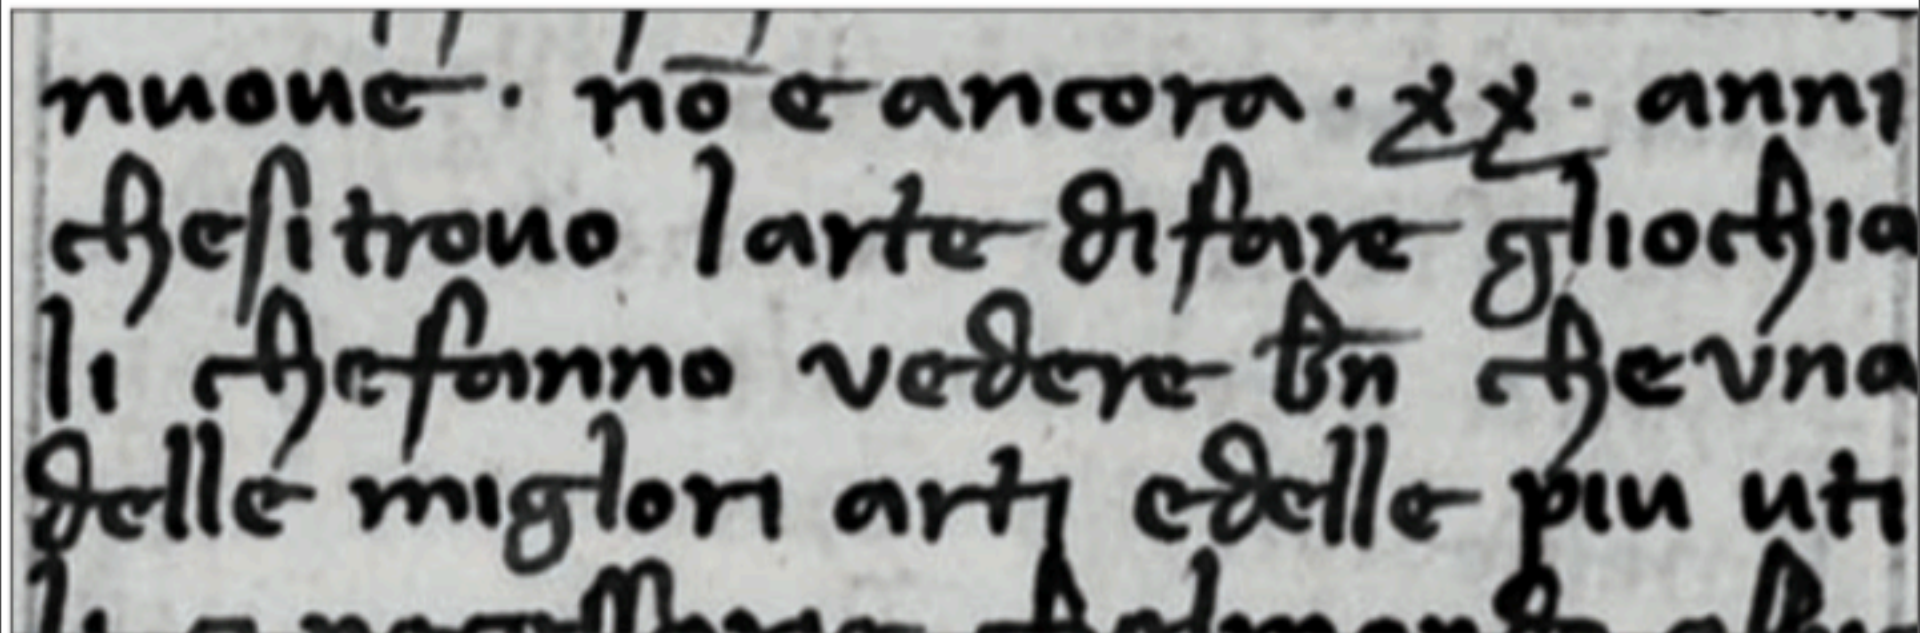 nuoue · nō e ancora · xx · anni
chesi trouo larte difare gliochia
li chefanno vedere bn̄ che vna
delle miglori arti edelle piu uti